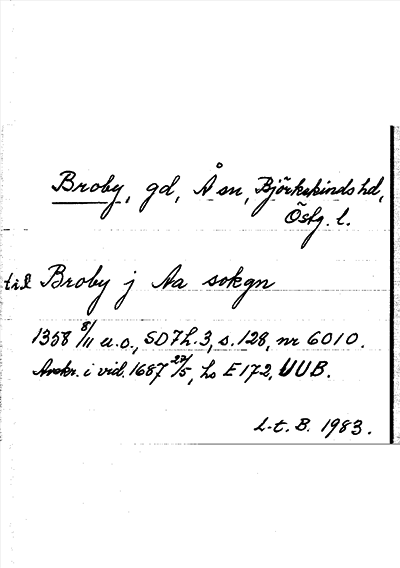 Broby, gd, Å sn, Björkekinds hd,
Östg. l.
til Broby j Aa sokgn
1358 8/11 u.o., SD 7 h. 3, s. 128, nr 6010.
Avskr. i vid. 1687 27/5, hs E 172, UUB.
L-t. B. 1983.